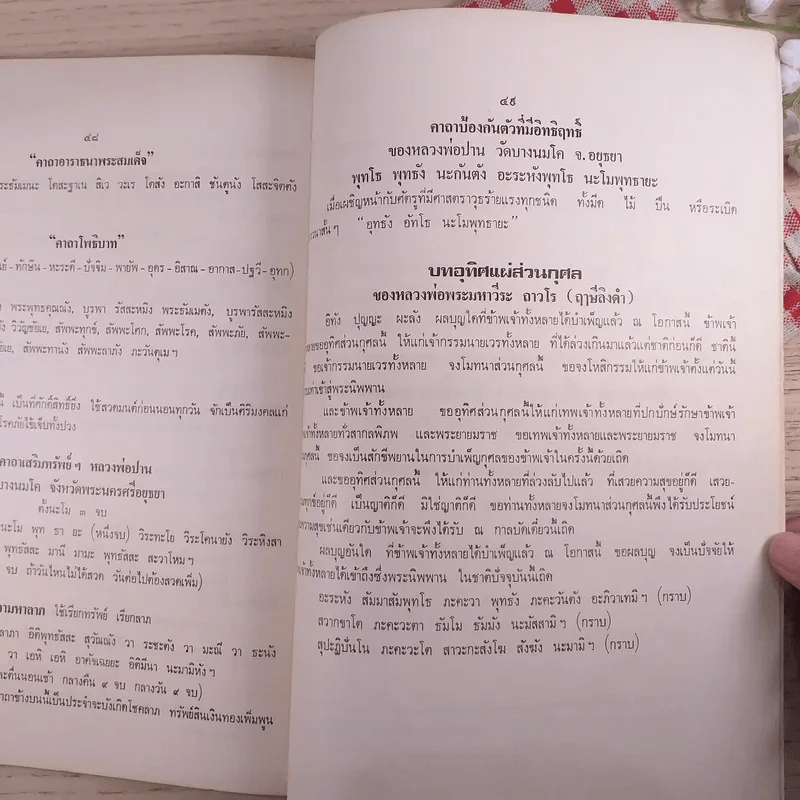 ๔๘
“คาถาอาราธนาพระสมเด็จ”
โตสะฐาเน สิเว วะเร โตสัง อะกาสิ ชันตุนัง โสสะจิตตัง
“คาถาโพธิบาท”
- ทักษิน - หะระดี - ปัจจิม - พายัพ - อุดร - อิสาณ - อากาส - ปฐวี - อุทก)
พระพุทธคุณณัง, บูรพา รัสสะหมิง พระธัมเมตัง, บูรพารัสสะหมิง
วิวัญชัยเย, สัพพะทุกข์, สัพพะโศก, สัพพะโรค, สัพพะภัย, สัพพะ-
สัพพะทานัง สัพพะลาภัง ภะวันตุเม ฯ
เป็นที่ศักดิ์สิทธิ์ยิ่ง ใช้สวดมนต์ก่อนนอนทุกวัน จักเป็นศิริมงคลแก่
โรคภัยไข้เจ็บทั้งปวง
คาถาเสริมทรัพย์ ฯ หลวงพ่อปาน
บางนมโค จังหวัดพระนครศรีอยุธยา
ตั้งนะโม ๓ จบ
นะโม พุท ธา ยะ (หนึ่งจบ) วิระทะโย วิระโคนายัง วิระหิงสา
พุทธัสสะ มานี มามะ พุทธัสสะ สะวาโหม ฯ
จบ ถ้าวันไหนไม่ได้สวด วันต่อไปต้องสวดเพิ่ม)
มหาลาภ ใช้เรียกทรัพย์ เรียกลาภ
ลาภา อิติพุทธัสสะ สุวัณณัง วา ระชะตัง วา มะณี วา ธะนัง
วา เอหิ เอหิ อาคัจเฉยยะ อิติมีนา นะมามิหัง ฯ
ตื่นนอนเช้า กลางคืน ๙ จบ กลางวัน ๙ จบ)
คาถาข้างบนนี้เป็นประจำจะบังเกิดโชคลาภ ทรัพย์สินเงินทองเพิ่มพูน
๔๙
คาถาป้องกันตัวที่มีอิทธิฤทธิ์
ของหลวงพ่อปาน วัดบางนมโค จ. อยุธยา
พุทโธ พุทธัง นะกันตัง อะระหังพุทโธ นะโมพุทธายะ
เมื่อเผชิญหน้ากับศัตรูที่มีศาสตราวุธร้ายแรงทุกชนิด ทั้งมีด ไม้ ปืน หรือระเบิด
สั้น ๆ “อุทธัง อัทโธ นะโมพุทธายะ”
บทอุทิศแผ่ส่วนกุศล
ของหลวงพ่อพระมหาวีระ ถาวโร (ฤาษีลิงดำ)
อิทัง ปุญญะ ผะลัง ผลบุญใดที่ข้าพเจ้าทั้งหลายได้บำเพ็ญแล้ว ณ โอกาสนี้ ข้าพเจ้า
ขออุทิศส่วนกุศลนี้ ให้แก่เจ้ากรรมนายเวรทั้งหลาย ที่ได้ล่วงเกินมาแล้วแต่ชาติก่อนก็ดี ชาตินี้
ขอเจ้ากรรมนายเวรทั้งหลาย จงโมทนาส่วนกุศลนี้ ขอจงโหสิกรรมให้แก่ข้าพเจ้าตั้งแต่วันนี้
เข้าสู่พระนิพพาน
และข้าพเจ้าทั้งหลาย ขออุทิศส่วนกุศลนี้ให้แก่เทพเจ้าทั้งหลายที่ปกปักษ์รักษาข้าพเจ้า
เจ้าทั้งหลายทั่วสากลพิภพ และพระยายมราช ขอเทพเจ้าทั้งหลายและพระยายมราช จงโมทนา
กุศลนี้ ขอจงเป็นสักขีพยานในการบำเพ็ญกุศลของข้าพเจ้าในครั้งนี้ด้วยเถิด
และขออุทิศส่วนกุศลนี้ ให้แก่ท่านทั้งหลายที่ล่วงลับไปแล้ว ที่เสวยความสุขอยู่ก็ดี เสวย-
ทุกข์อยู่ก็ดี เป็นญาติก็ดี มิใช่ญาติก็ดี ขอท่านทั้งหลายจงโมทนาส่วนกุศลนี้พึงได้รับประโยชน์
ความสุขเช่นเดียวกับข้าพเจ้าจะพึงได้รับ ณ กาลบัดเดี๋ยวนี้เถิด
ผลบุญอันใด ที่ข้าพเจ้าทั้งหลายได้บำเพ็ญแล้ว ณ โอกาสนี้ ขอผลบุญ จงเป็นปัจจัยให้
เจ้าทั้งหลายได้เข้าถึงซึ่งพระนิพพาน ในชาติปัจจุบันนี้เถิด
อะระหัง สัมมาสัมพุทโธ ภะคะวา พุทธัง ภะคะวันตัง อะภิวาเทมิ ฯ (กราบ)
สวากขาโต ภะคะวะตา ธัมโม ธัมมัง นะมัสสามิ ฯ (กราบ)
สุปะฏิปันโน ภะคะวะโต สาวะกะสังโฆ สังฆัง นะมามิ ฯ (กราบ)